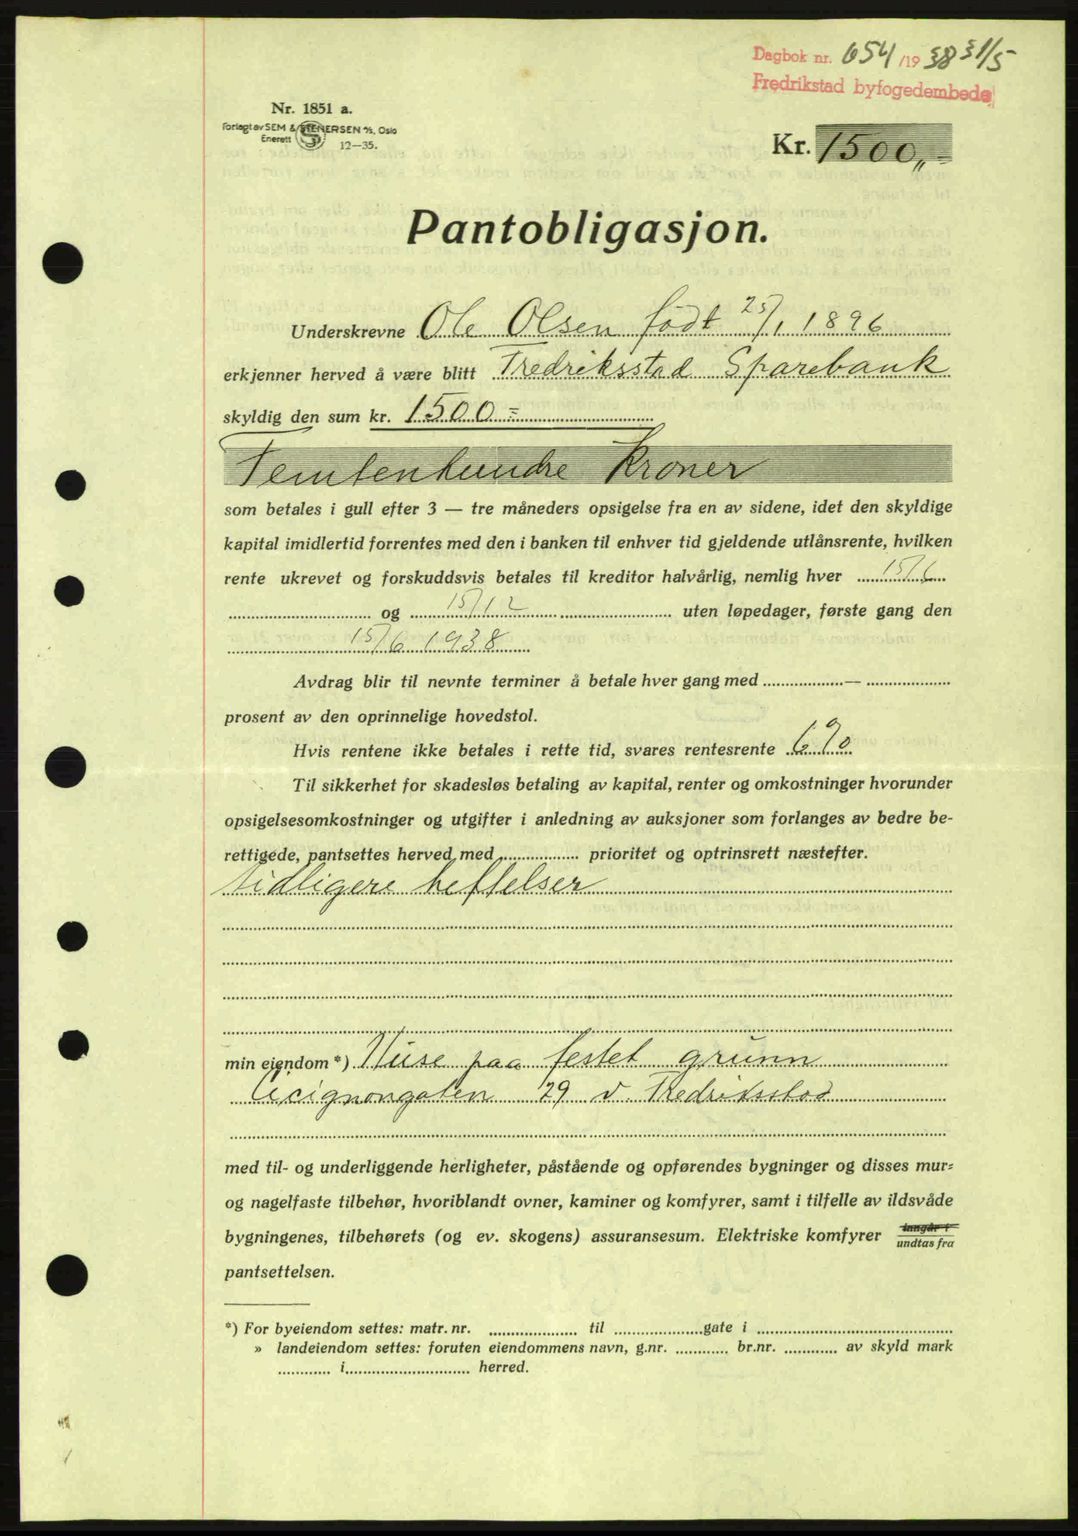 Dagbok nr. 654/1938 31/5
Fredrikstad byfogedembede
Nr. 1851 a.
Forlagt av SEM & STENERSEN A/S, Oslo
Enerett
12—35.
Kr. 1500,,=
Pantobligasjon.
Underskrevne Ole Olsen født 25/1 1896
erkjenner herved å være blitt Fredriksstad Sparebank
skyldig den sum kr. 1500 =
Femtenhundre Kroner
som betales i gull efter 3 — tre måneders opsigelse fra en av sidene, idet den skyldige
kapital imidlertid forrentes med den i banken til enhver tid gjeldende utlånsrente, hvilken
rente ukrevet og forskuddsvis betales til kreditor halvårlig, nemlig hver 15/6
og 15/12 uten løpedager, første gang den
15/6 1938
Avdrag blir til nevnte terminer å betale hver gang med —
prosent av den oprinnelige hovedstol.
Hvis rentene ikke betales i rette tid, svares rentesrente 6 %
Til sikkerhet for skadesløs betaling av kapital, renter og omkostninger hvorunder
opsigelsesomkostninger og utgifter i anledning av auksjoner som forlanges av bedre be-
rettigede, pantsettes herved med prioritet og optrinsrett næstefter.
tidligere heftelser
min eiendom *) Huse paa festet grunn
Cicignongaten 29 v. Fredriksstad
med til- og underliggende herligheter, påstående og opførendes bygninger og disses mur-
og nagelfaste tilbehør, hvoriblandt ovner, kaminer og komfyrer, samt i tilfelle av ildsvåde
bygningenes, tilbehørets (og ev. skogens) assuransesum. Elektriske komfyrer inngår i
undtas fra
pantsettelsen.
*) For byeiendom settes: matr. nr. til gate i
» landeiendom settes: foruten eiendommens navn, g.nr. br.nr. av skyld mark
i herred.